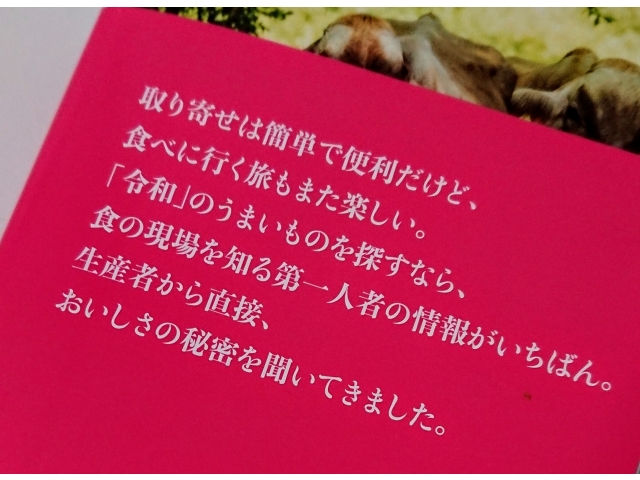 取り寄せは簡単で便利だけど、
食べに行く旅もまた楽しい。
「令和」のうまいものを探すなら、
食の現場を知る第一人者の情報がいちばん。
生産者から直接、
おいしさの秘密を聞いてきました。